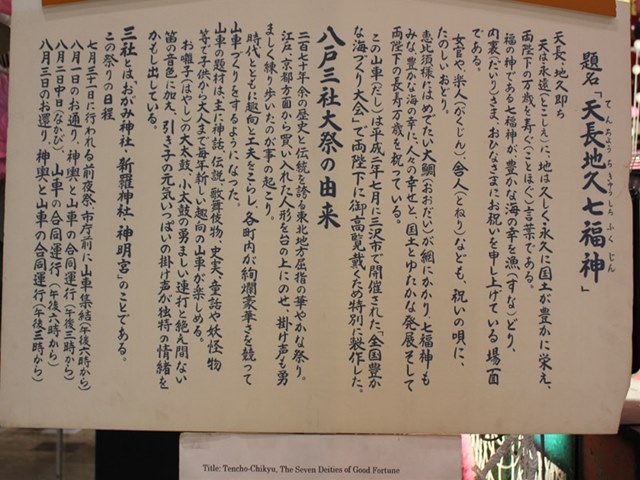 題名「天長地久七福神」
てんちょうちきゅうしちふくじん
天長、地久即ち
天は永遠(とこしえ)に、地は久しく永久に国土が豊かに栄え、
両陛下の万歳を寿(ことほぐ)言葉である。
福の神である七福神が豊かな海の幸を漁(すな)どり、
内裏(だいり)さま、おひなさまにお祝いを申し上げている場面
である。
女官や、楽人(がくじん)、舎人(とねり)なども、祝いの唄に、
たのしいおどり。
恵比須様にはめでたい大鯛(おおだい)が網にかかり、七福神も
みな、豊かな海の幸に、人々の幸せと、国土とゆたかな発展、そして
両陛下の長寿万歳を祝っている。
この山車(だし)は平成二年七月に三沢市で開催された、「全国豊か
な海づくり大会」で両陛下に御高覧戴くため特別に製作した。
八戸三社大祭の由来
二百七十余の歴史と伝統を誇る東北地方屈指の華やかな祭り。
江戸、京都方面から買い入れた人形を台の上にのせ、掛け声も勇
ましく練り歩いたのが事の起こり。
時代とともに趣向と工夫をこらし、各町内が絢爛豪華さを競って
山車づくりをするようになった。
山車の題材は主に神話、伝説、歌舞伎物、史実、童話や妖怪物
等で子供から大人まで毎年新しい趣向の山車が楽しめる。
お囃子(はやし)の大太鼓、小太鼓の勇ましい連打と絶え間ない
笛の音色に加え、引き子の元気いっぱいの掛け声が独特の情緒を
かもし出している。
三社とは、おがみ神社、新羅神社、神明宮のことである。
この祭りの日程
七月三十一に行われる前夜祭、市庁前に山車集結(午後六時から)
八月一日のお通り、神輿と山車の合同運行(午後三時から)
八月二日中日(なかび)、山車の合同運行(午後六時から)
八月三日のお還り、神輿と山車の合同運行(午後三時から)
Title: Tencho-Chikyu, The Seven Deities of Good Fortune